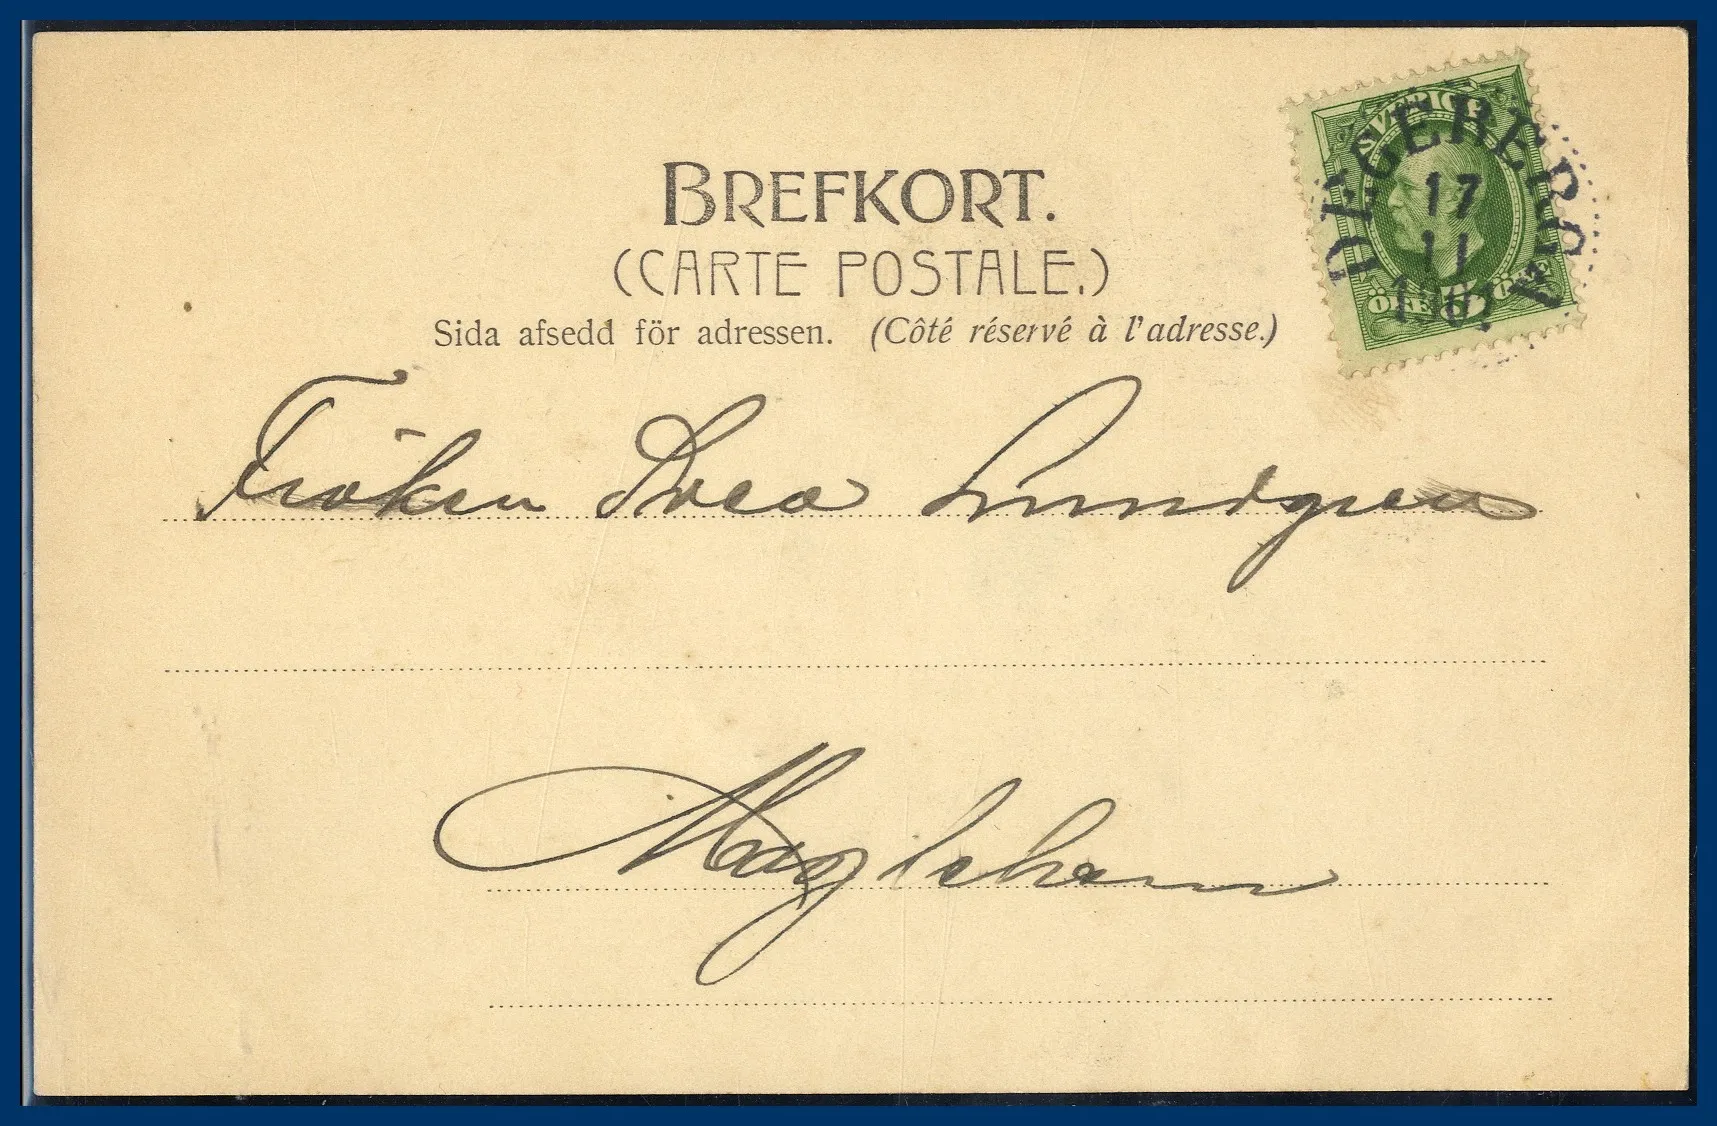 SVERIGE
DEGEBERGA
17
11
ÖRE
BREFKORT.
(CARTE POSTALE.)
Sida afsedd för adressen. (Côté réservé à l'adresse.)
Fröken Svea Lundgren
Maglehem